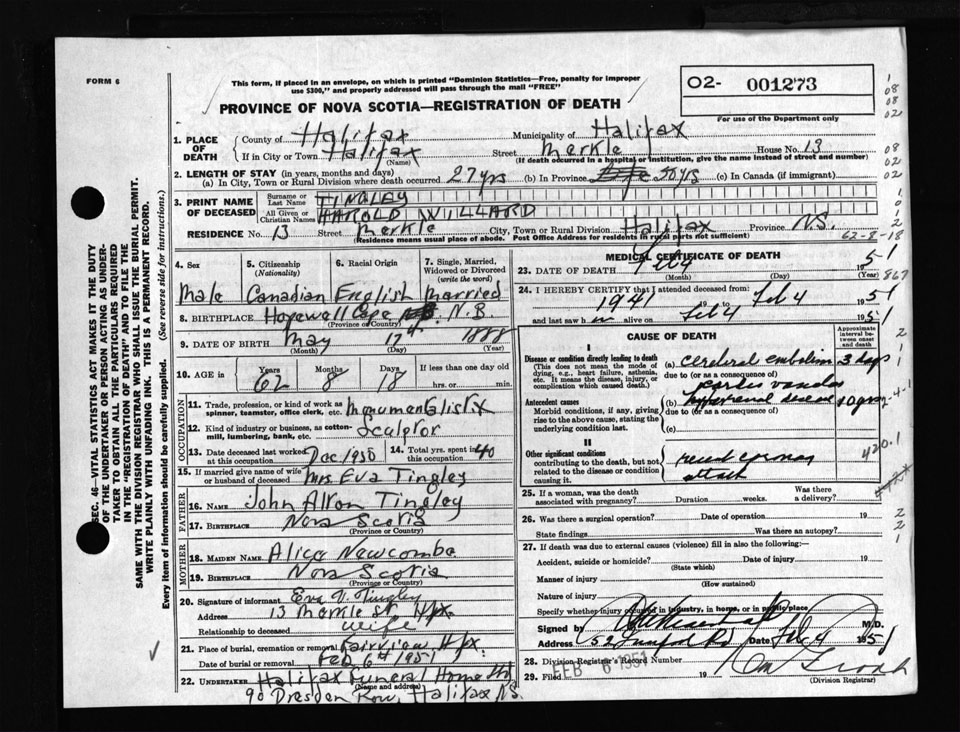 FORM 6
This form, if placed in an envelope, on which is printed "Dominion Statistics—Free, penalty for improper
use $300," and properly addressed will pass through the mail "FREE"
PROVINCE OF NOVA SCOTIA—REGISTRATION OF DEATH
02- 001273
For use of the Department only
1. PLACE OF DEATH
County of Halifax Municipality of Halifax
If in City or Town Halifax (Name) Street Merkle House No. 13
(If death occurred in a hospital or institution, give the name instead of street and number)
2. LENGTH OF STAY (in years, months and days)
(a) In City, Town or Rural Division where death occurred 27 yrs (b) In Province 50 yrs (c) In Canada (if immigrant)
3. PRINT NAME OF DECEASED
Surname or Last Name TINGLEY
All Given or Christian Names HAROLD WILLARD
RESIDENCE No. 13 Street Merkle City, Town or Rural Division Halifax Province N.S.
(Residence means usual place of abode. Post Office Address for residents in rural parts not sufficient)
62-8-18
4. Sex Male
5. Citizenship (Nationality) Canadian
6. Racial Origin English
7. Single, Married, Widowed or Divorced (write the word) Married
8. BIRTHPLACE Hopewell Cape N.B.
(Province or Country)
9. DATE OF BIRTH May 17 1888
(Month) (Day) (Year)
10. AGE Years 62 Months 8 Days 18 If less than one day old
hrs. or min.
OCCUPATION
11. Trade, profession, or kind of work as spinner, teamster, office clerk, etc. Monumentalist
12. Kind of industry or business, as cotton-mill, lumbering, bank, etc. Sculptor
13. Date deceased last worked at this occupation Dec 1950 14. Total yrs. spent in this occupation 40
15. If married give name of wife or husband of deceased Mrs. Eva Tingley
FATHER
16. NAME John Alton Tingley
17. BIRTHPLACE Nova Scotia
(Province or Country)
MOTHER
18. MAIDEN NAME Alice Newcombe
19. BIRTHPLACE Nova Scotia
(Province or Country)
20. Signature of informant Eva T. Tingley
Address 13 Merkle St. Hfx
Relationship to deceased wife
21. Place of burial, cremation or removal Fairview Hfx.
Date of burial or removal Feb 6th 1951
22. UNDERTAKER Halifax Funeral Home Ltd
(Name and address)
90 Dresden Row, Halifax N.S.
MEDICAL CERTIFICATE OF DEATH
23. DATE OF DEATH Feb 4 1951
(Month) (Day) (Year)
24. I HEREBY CERTIFY that I attended deceased from:
1941 19 to Feb 4 1951
and last saw h im alive on Feb 4 1951
CAUSE OF DEATH
Approximate interval between onset and death
I
Disease or condition directly leading to death
(This does not mean the mode of dying, e.g., heart failure, asthenia, etc. It means the disease, injury, or complication which caused death.)
(a) cerebral embolism 3 days
due to (or as a consequence of)
Antecedent causes
Morbid conditions, if any, giving rise to the above cause, stating the underlying condition last.
(b) cardio vascular
disease 10 yrs
due to (or as a consequence of)
(c)
II
Other significant conditions
contributing to the death, but not related to the disease or condition causing it.
recent coronary
attack
420.1
25. If a woman, was the death associated with pregnancy? Duration weeks. Was there a delivery?
26. Was there a surgical operation? Date of operation 19
State findings Was there an autopsy?
27. If death was due to external causes (violence) fill in also the following:
Accident, suicide or homicide? (State which) Date of injury 19
Manner of injury (How sustained)
Nature of injury
Specify whether injury occurred in industry, in home, or in public place
Signed by M.D.
Address 52 Rd Date Feb 4 1951
28. Division Registrar's Record Number
29. Filed FEB 6 1951 19
(Division Registrar)
SEC. 46—VITAL STATISTICS ACT MAKES IT THE DUTY
OF THE UNDERTAKER OR PERSON ACTING AS UNDERTAKER TO OBTAIN ALL THE PARTICULARS REQUIRED
IN THE "REGISTRATION OF DEATH" AND TO FILE THE
SAME WITH THE DIVISION REGISTRAR WHO SHALL ISSUE THE BURIAL PERMIT.
WRITE PLAINLY WITH UNFADING INK. THIS IS A PERMANENT RECORD.
Every item of information should be carefully supplied. (See reverse side for instructions)